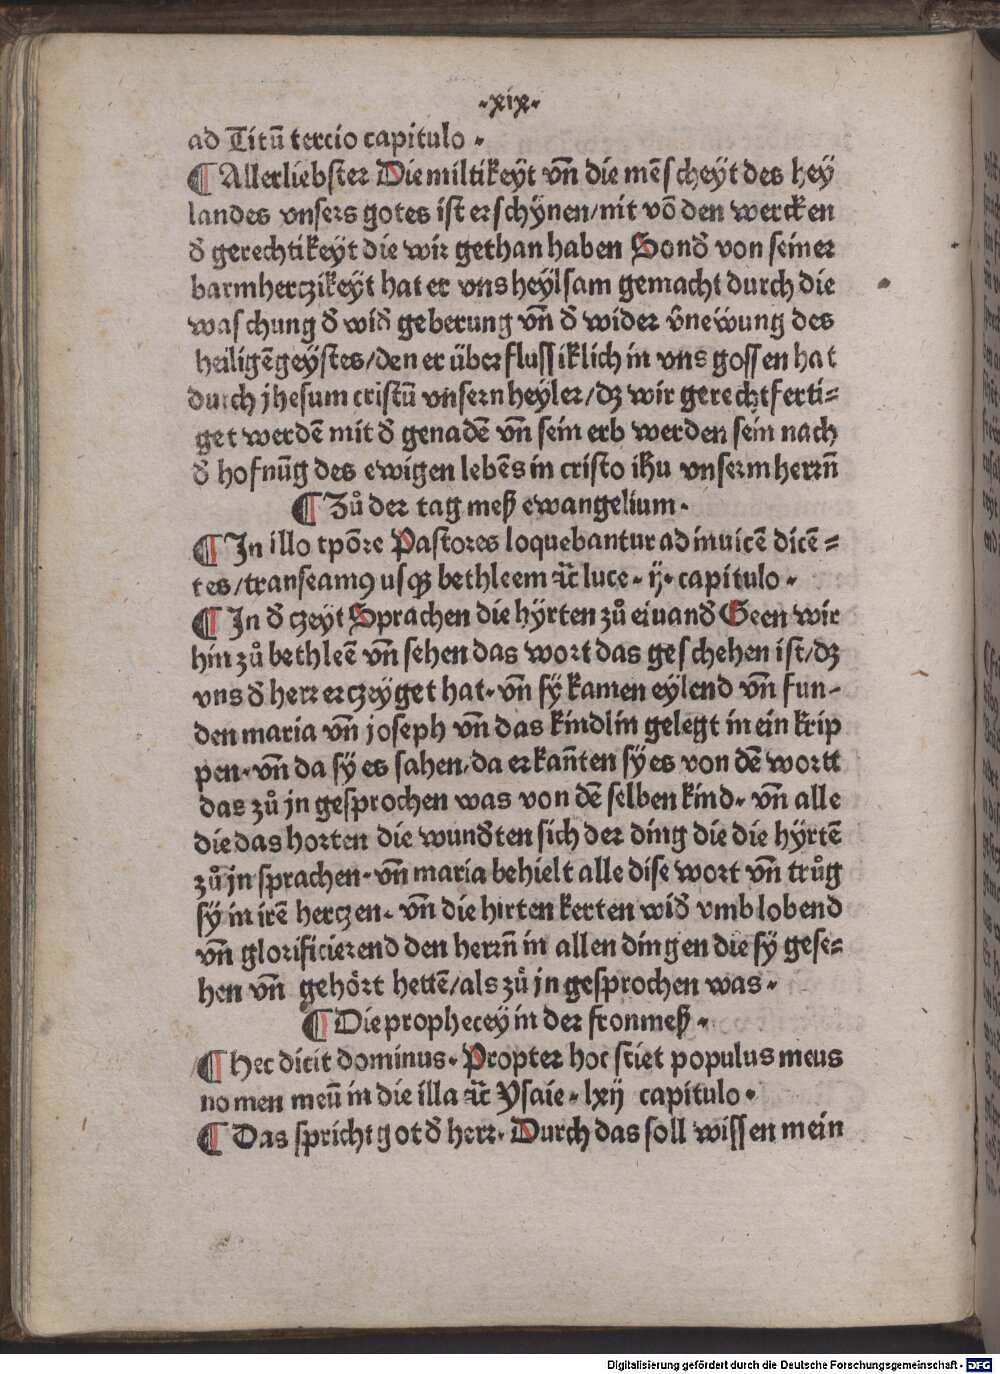 ·xix·
ad Titū tercio capitulo ·
¶ Allerliebster Die miltikeÿt vn̄ die mēscheÿt des hey
landes vnsers gotes ist erschÿnen/nit vō den wercken
d̕ gerechtikeÿt die wir gethan haben Sond̕ von seiner
barmherczikeÿt hat er vns heÿlsam gemacht durch die
waschung d̕ wid̕ geberung vn̄ d̕ wider v̄neẅung des
heiligē geÿstes/den er überflussiklich in vns gossen hat
durch jhesum cristū vnsern heyler/dz wir gerechtferti⸗
get werdē mit d̕ genadē vn̄ sein erb werden sein nach
d̕ hofnūg des ewigen lebēs in cristo ihu vnserm herrn̄
¶ Zů der tag meß ewangelium·
¶ In illo tpōre Pastores loquebantur ad inuicē dicē⸗
tes/transeamꝰ usqꝫ bethleem ⁊c̄ luce· ij· capitulo·
¶ In d̕ czeÿt Sprachen die hÿrten zů einand̕ Geen wir
hin zů bethleē vn̄ sehen das wort das geschehen ist/dz
vns d̕ herr erczeÿget hat· vn̄ sÿ kamen eÿlend vn̄ fun⸗
den maria vn̄ joseph vn̄ das kindlin gelegt in ein krip
pen· vn̄ da sÿ es sahen/da erkan̄ten sÿ es von dē wortt
das zů jn gesprochen was von dē selben kind· vn̄ alle
die das horten die wund̕ten sich der ding die die hÿrtē
zů jn sprachen· vn̄ maria behielt alle dise wort vn̄ trůg
sÿ in irē herczen· vn̄ die hirten kerten wid̕ vmb lobend
vn̄ glorificierend den herrn̄ in allen dingen die sÿ gese⸗
hen vn̄ gehört hettē/als zů jn gesprochen was·
¶ Die prophecey in der fronmeß·
¶ Hec dicit dominus· Propter hoc sciet populus meus
nomen meū in die illa ⁊c̄ Ysaie· lxij capitulo·
¶ Das spricht got d̕ herr· Durch das soll wissen mein
Digitalisierung gefördert durch die Deutsche Forschungsgemeinschaft - DFG